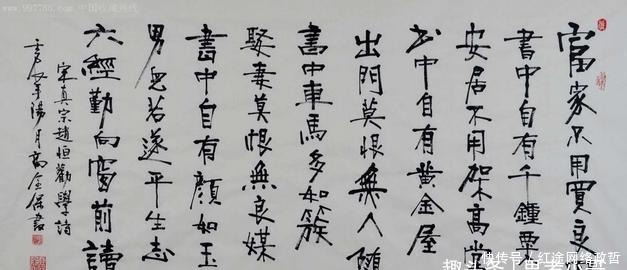 富家不用買良
書中自有千鍾粟
安居不用架高堂
书中自有黃金屋
出門莫恨無人隨
書中車馬多如簇
娶妻莫恨無良媒
書中自有顏如玉
男兒若遂平生志
六經勤向窗前讀
宋真宗趙恒勸學詩
年陽月高金 書
www.997788.com 中国收藏热线
快传号 / 红途网络政哲